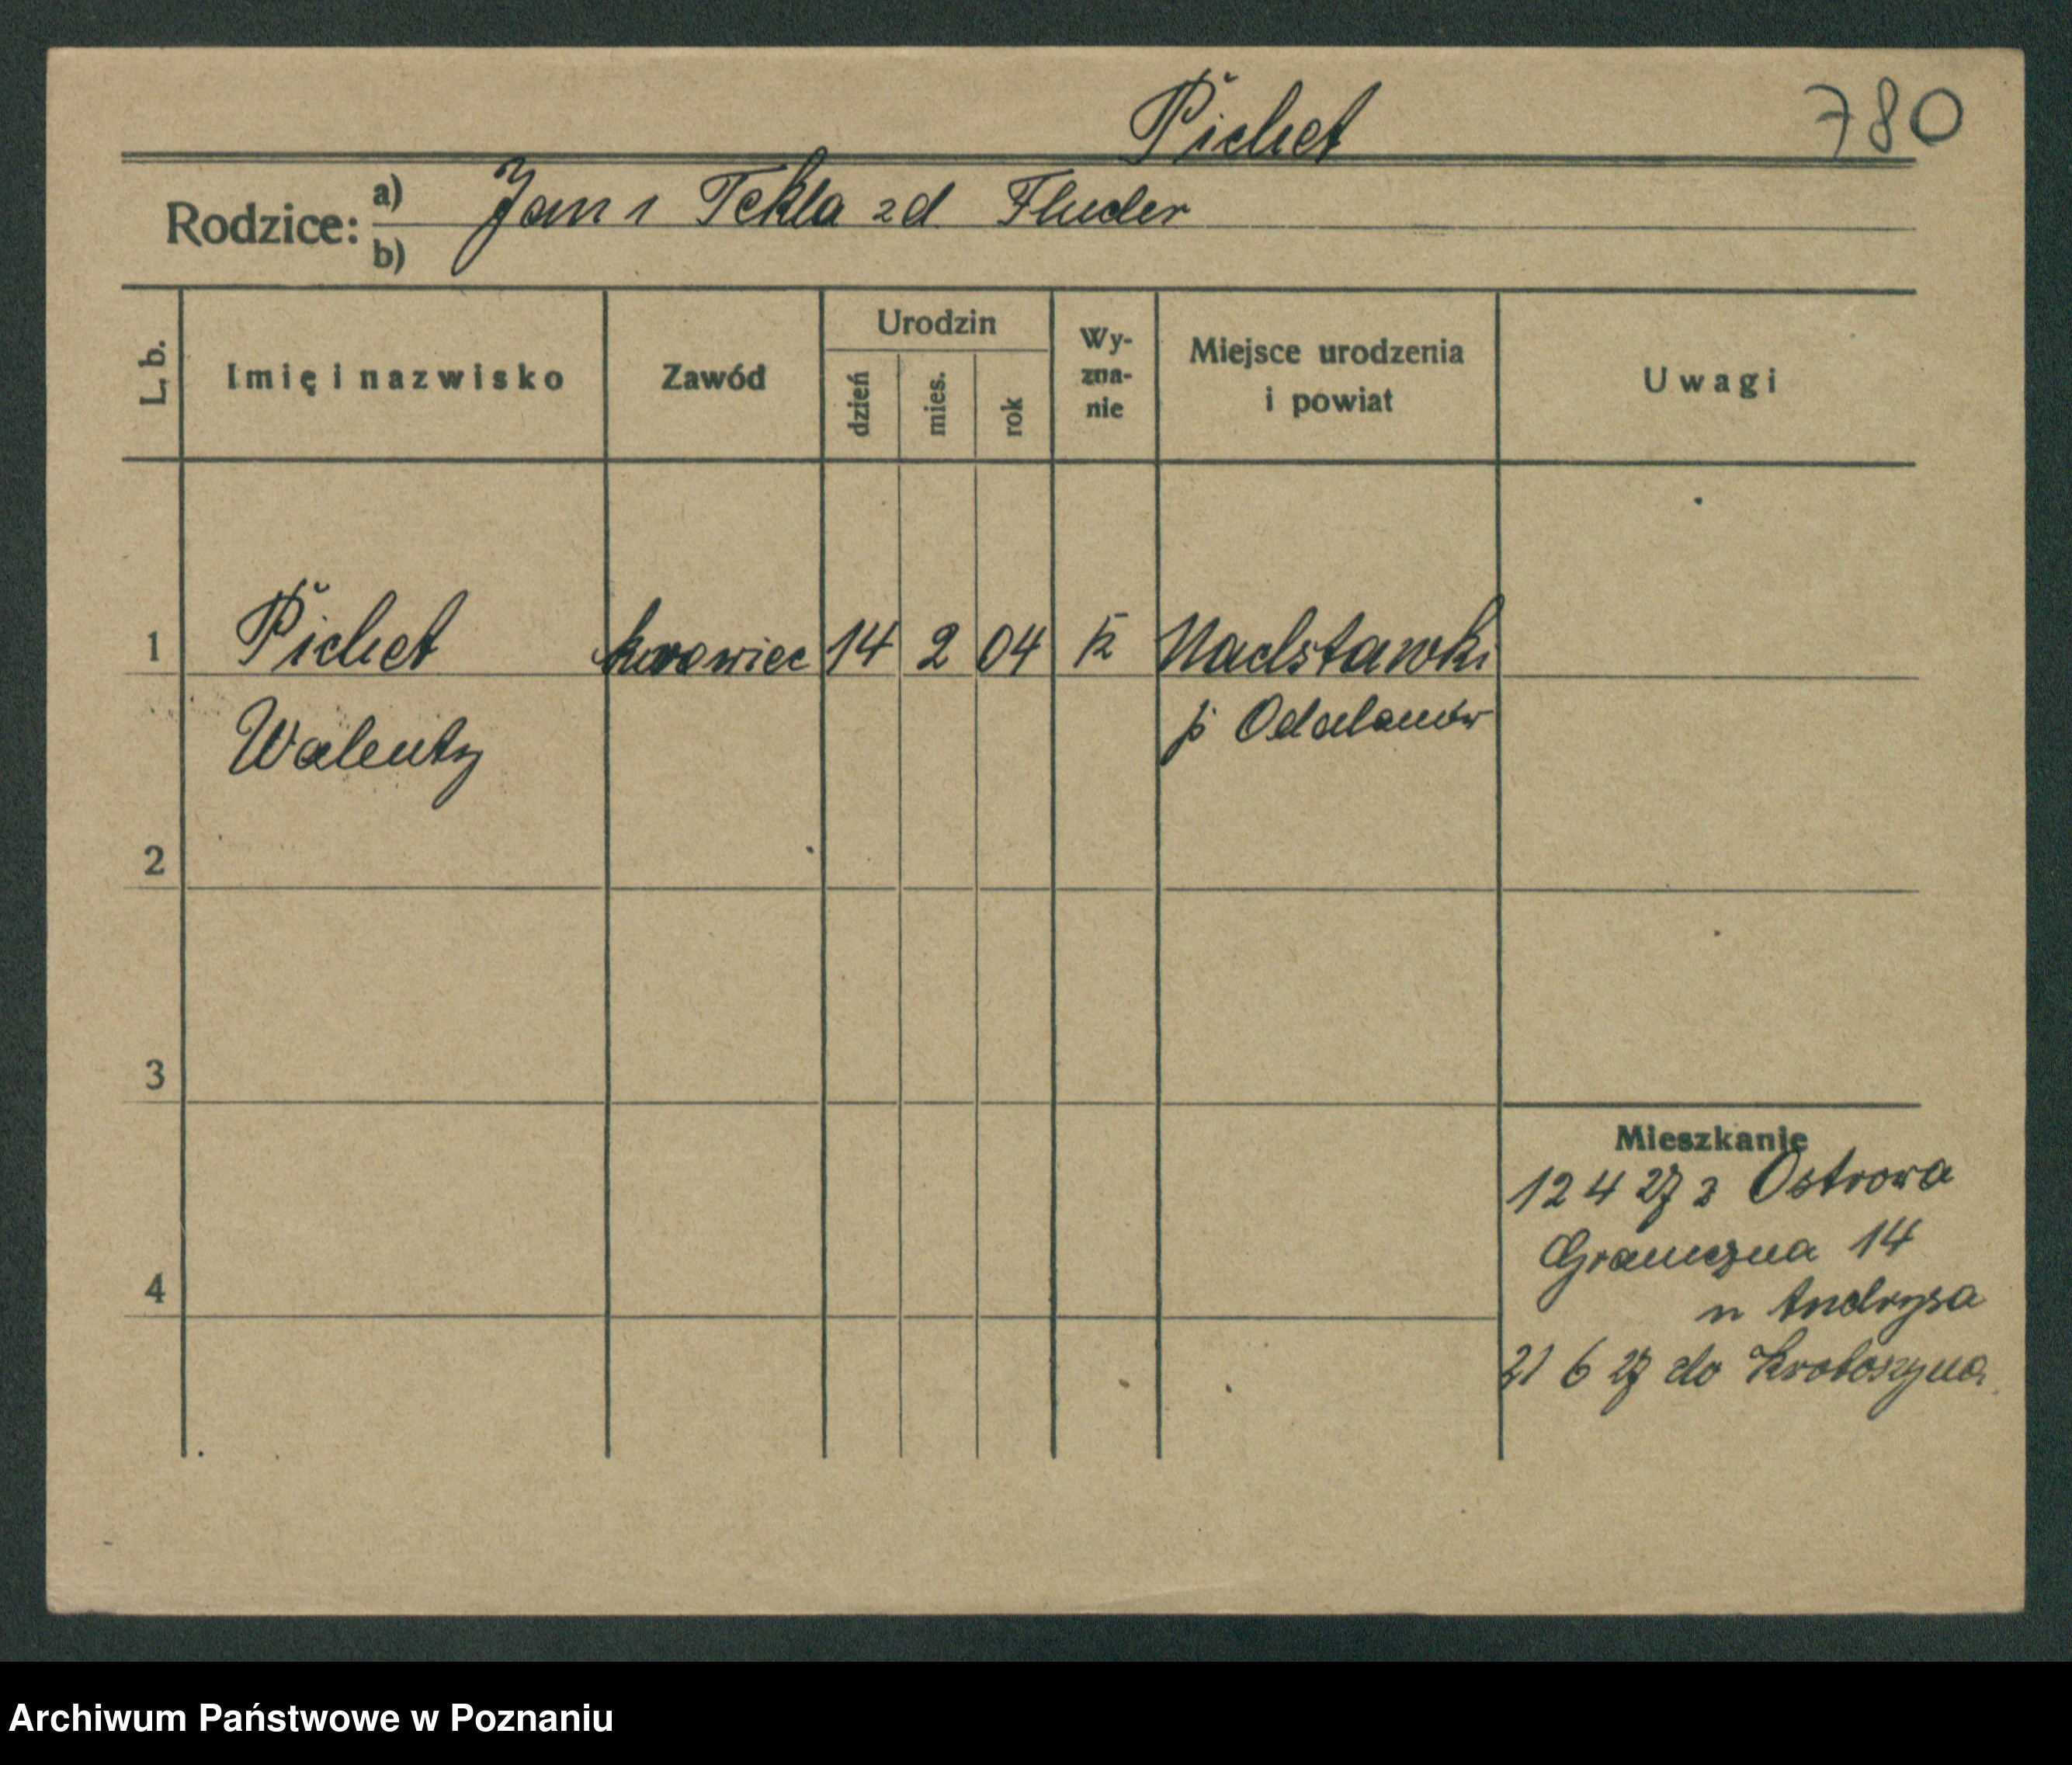 Pichet 780
Rodzice: a) Jan i Tekla zd Fluder
b)
L. b. Imię i nazwisko Zawód Urodzin dzień mies. rok Wy-zna-nie Miejsce urodzenia i powiat Uwagi
1 Pichet 14 2 04 k Nadstawki
Walenty p Odolanów
2
3
Mieszkanie
12 4 27 z Ostrowa
Graniczna 14
4
u Andrysa
21 6 27 do Krotoszyna
Archiwum Państwowe w Poznaniu